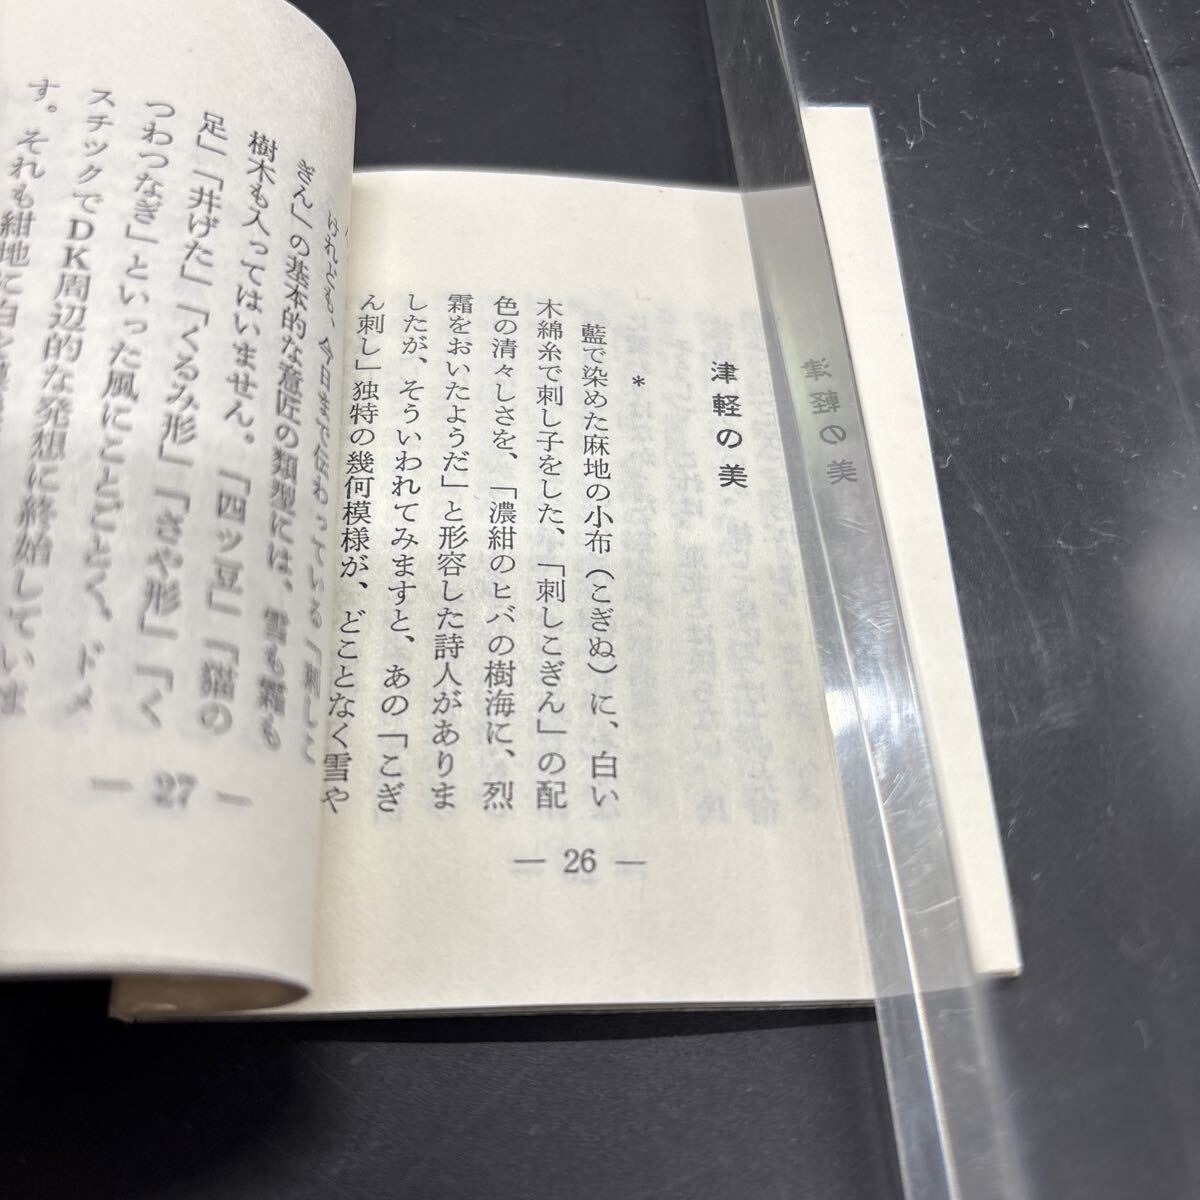 津軽の美
＊
藍で染めた麻地の小布（こぎぬ）に、白い
木綿糸で刺し子をした、「刺しこぎん」の配
色の清々しさを、「濃紺のヒバの樹海に、烈
霜をおいたようだ」と形容した詩人がありま
したが、そういわれてみますと、あの「こぎ
ん刺し」独特の幾何模様が、どことなく雪や
— 26 —
けれども、今日まで伝わっている「刺しこ
ぎん」の基本的な意匠の類型には、雪も霜も
樹木も入ってはいません。「四ッ豆」「猫の
足」「井げた」「くるみ形」「さや形」「く
つわつなぎ」といった風にことごとく、ドメ
スチックでDK周辺的な発想に終始していま
す。それも紺地に白と
— 27 —